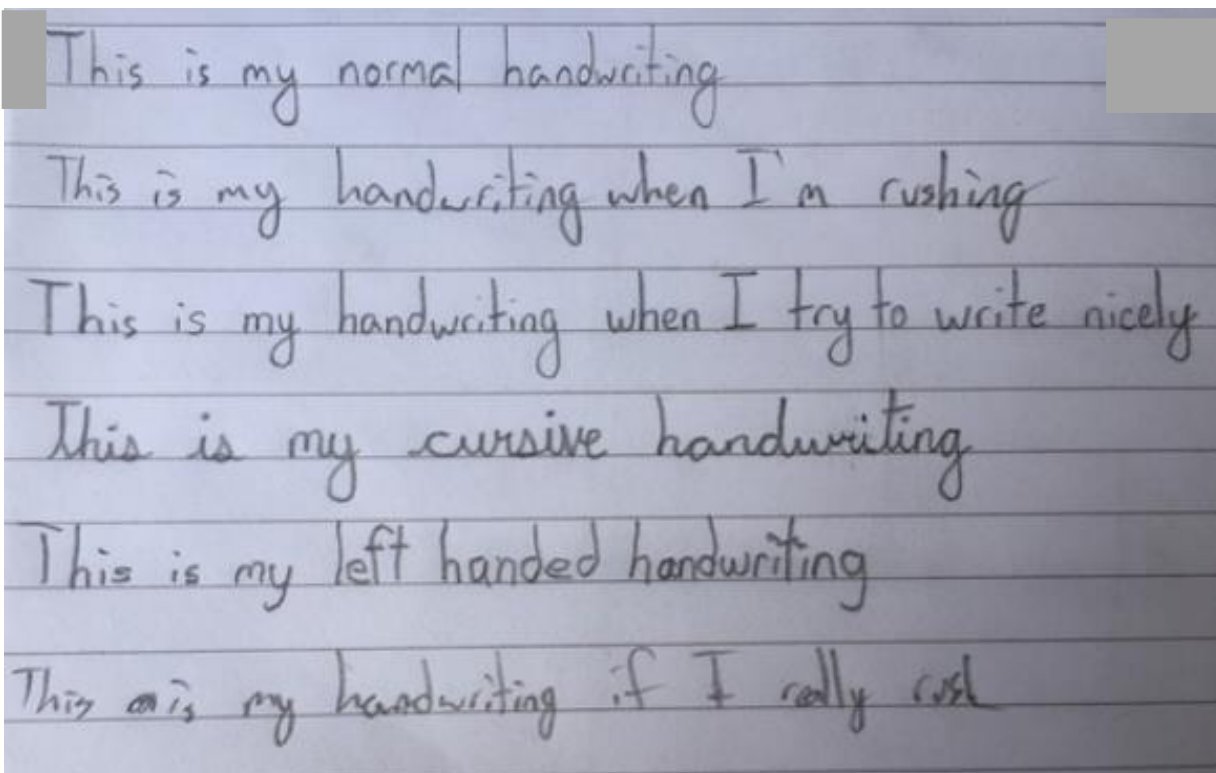 This is my normal handwriting
This is my handwriting when I'm rushing
This is my handwriting when I try to write nicely
This is my cursive handwriting
This is my left handed handwriting
This is my handwriting if I really rush